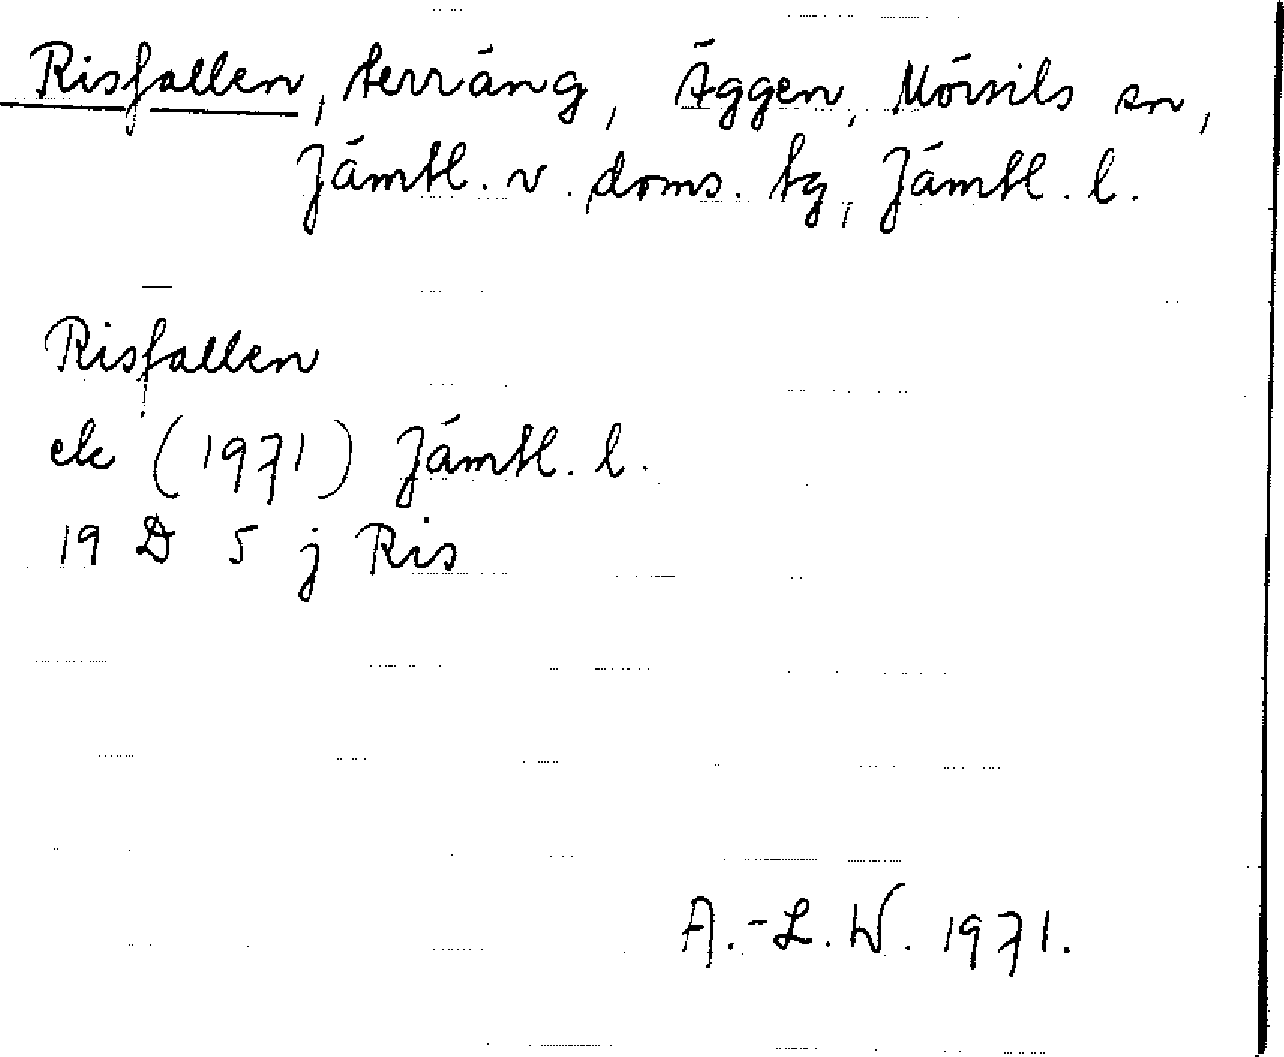 Risfallen, terräng, Äggen, Mörsils sn,
Jämtl. v. doms. tg, Jämtl. l.
Risfallen
ek (1971) Jämtl. l.
19 D 5 j Ris
A.-L. W. 1971.